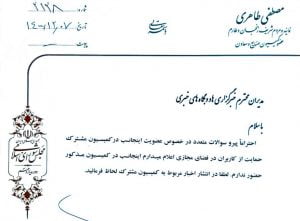 مصطفی طاهری
شماره: ۲۱۲۸
تاریخ: ۱۴۰۰/۱۲/۰۷
پیوست:
مدیران محترم خبرگزاری ها و پایگاه های خبری
با سلام
احتراماً پیرو سوالات متعدد در خصوص عضویت اینجانب در کمیسیون مشترک
حمایت از کاربران در فضای مجازی اعلام میدارم اینجانب در کمیسیون مذکور
حضور ندارم. لطفا در انتشار اخبار مربوط به کمیسیون مشترک لحاظ فرمائید.
مجلس شورای اسلامی